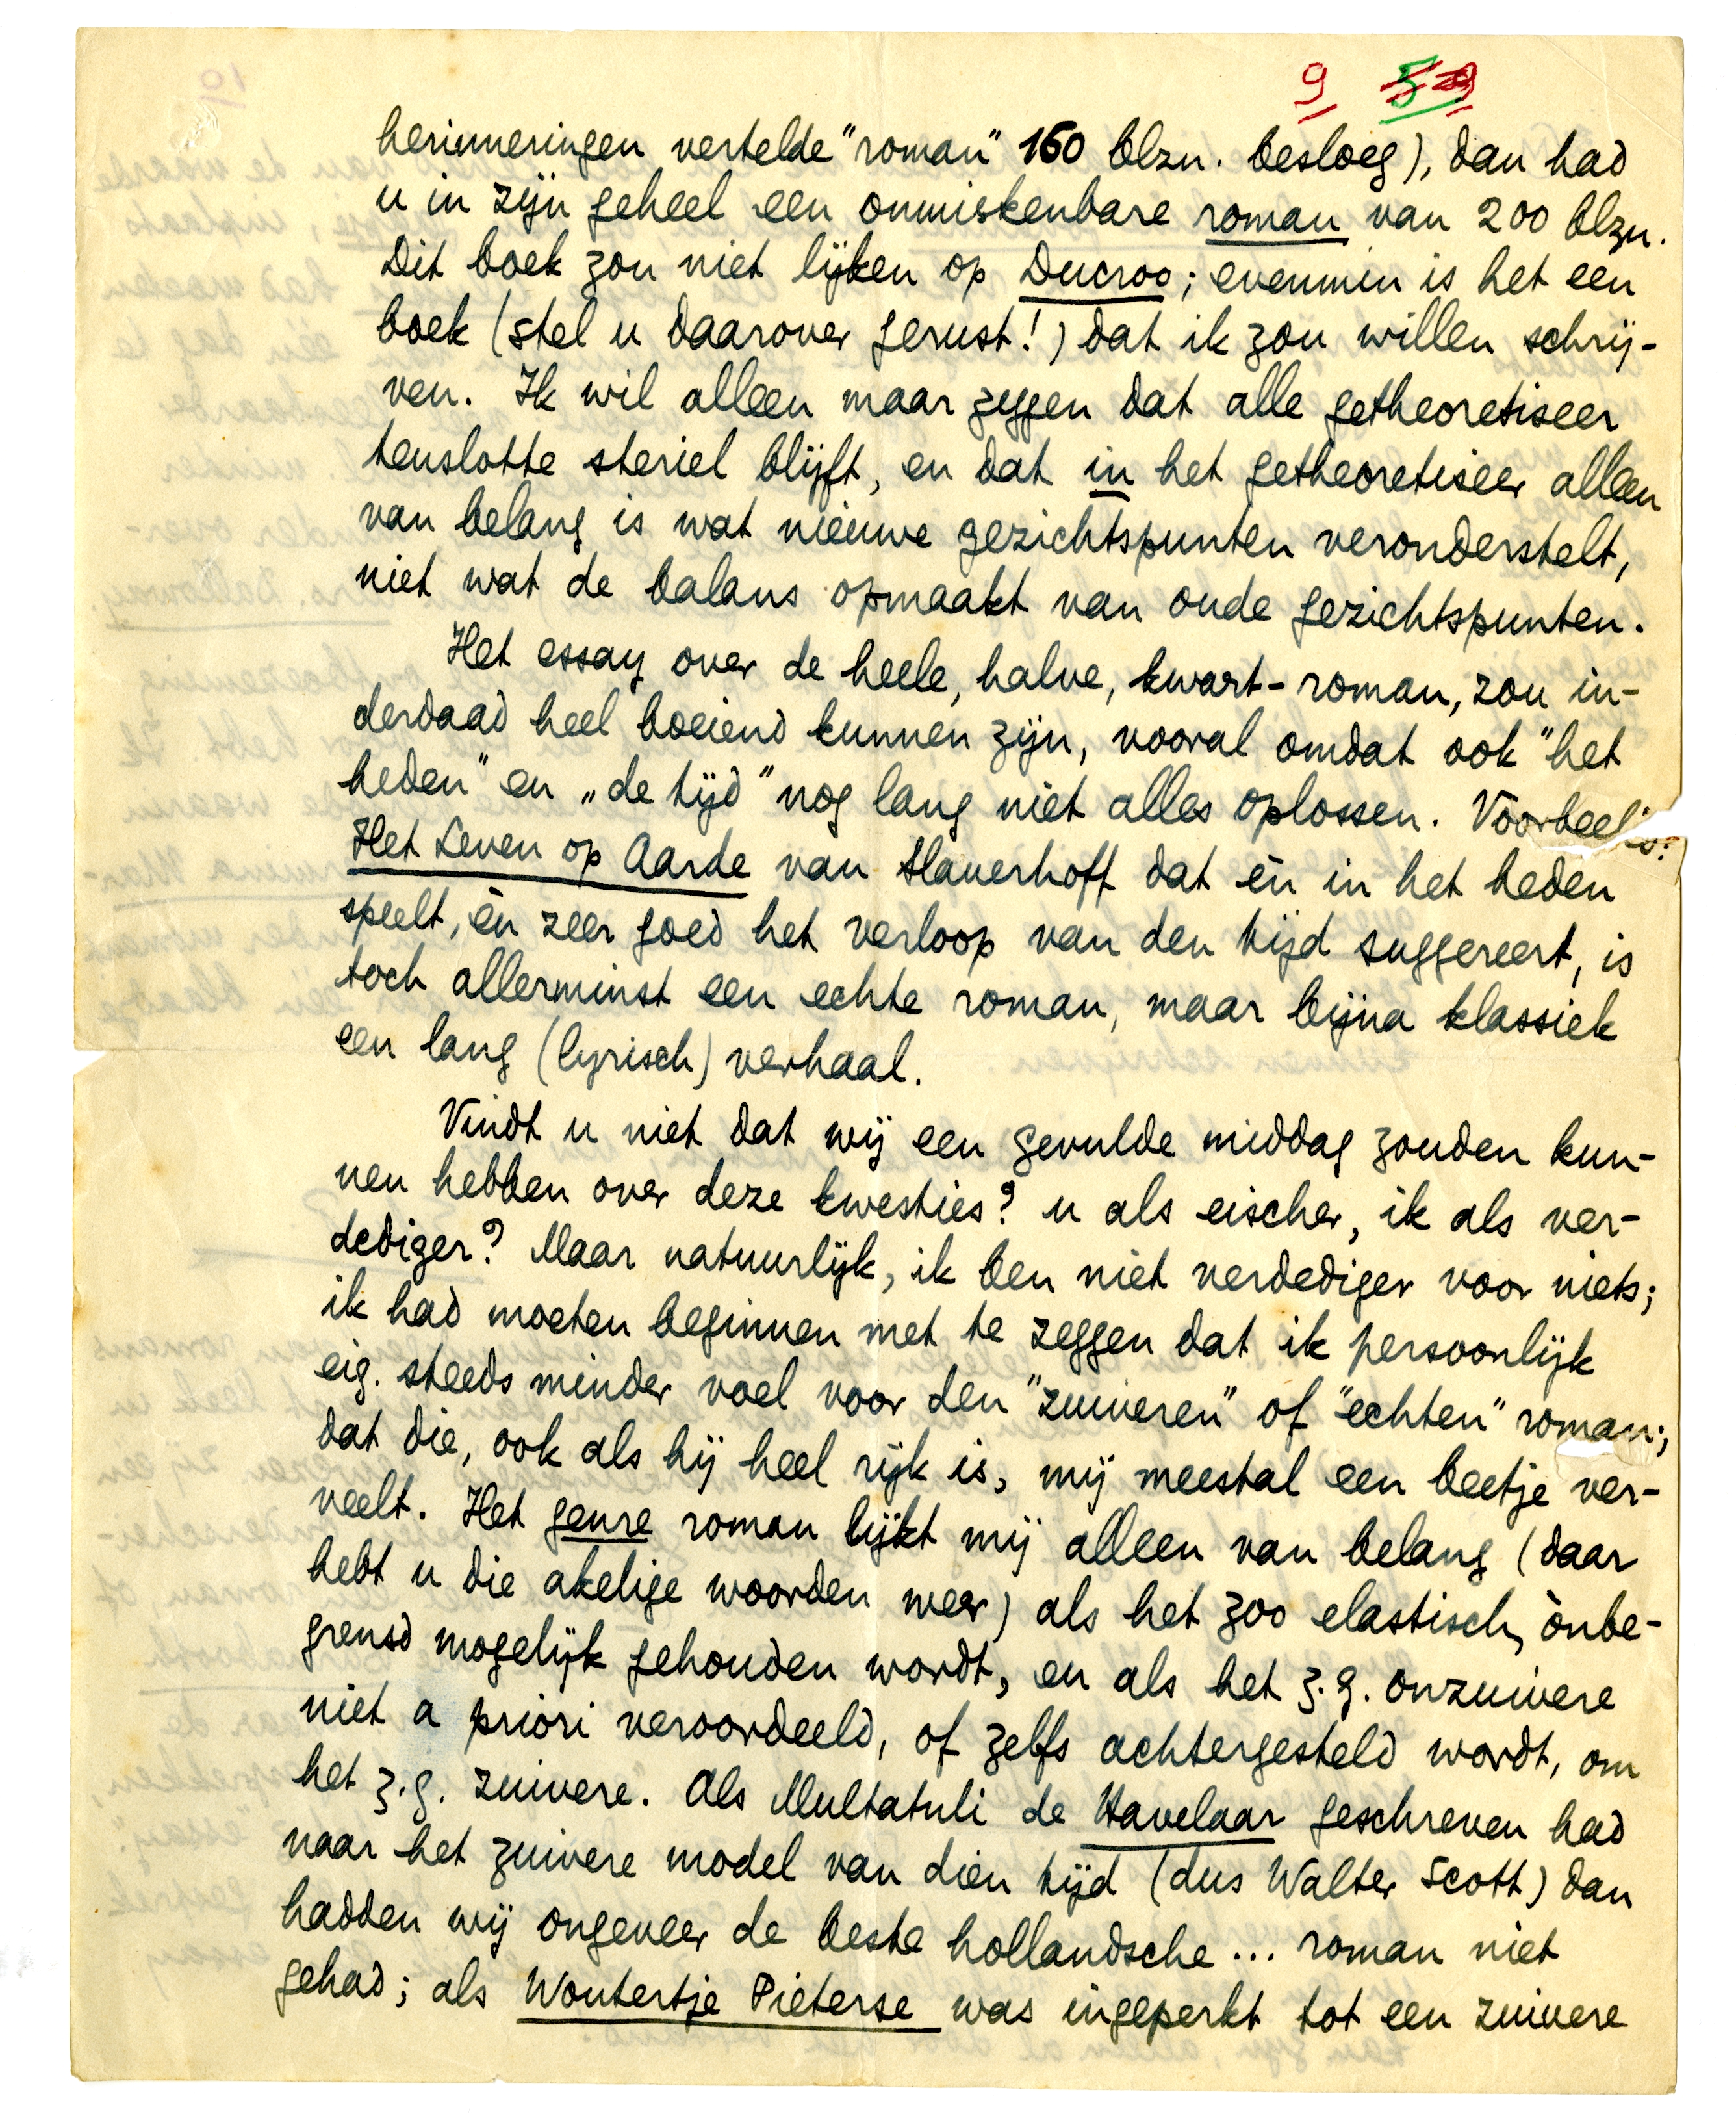 9 5
herinneringen vertelde "roman" 160 blzn. besloeg), dan had
u in zijn geheel een onmiskenbare roman van 200 blzn.
Dit boek zou niet lijken op Ducroo; evenmin is het een
boek (stel u daarover gerust!) dat ik zou willen schrij-
ven. Ik wil alleen maar zeggen dat alle getheoretiseer
tenslotte steriel blijft, en dat in het getheoretiseer alleen
van belang is wat nieuwe gezichtspunten veronderstelt,
niet wat de balans opmaakt van oude gezichtspunten.
Het essay over de heele, halve, kwart-roman, zou in-
derdaad heel boeiend kunnen zijn, vooral omdat ook "het
heden" en „de tijd" nog lang niet alles oplossen. Voorbeeld:
Het Leven op Aarde van Slauerhoff dat èn in het heden
speelt, èn zeer goed het verloop van den tijd suggereert, is
toch allerminst een echte roman, maar bijna klassiek
een lang (lyrisch) verhaal.
Vindt u niet dat wij een gevulde middag zouden kun-
nen hebben over deze kwesties? u als eischer, ik als ver-
dediger? Maar natuurlijk, ik ben niet verdediger voor niets;
ik had moeten beginnen met te zeggen dat ik persoonlijk
eig. steeds minder voel voor den "zuiveren" of "echten" roman;
dat die, ook als hij heel rijk is, mij meestal een beetje ver-
veelt. Het genre roman lijkt mij alleen van belang (daar
hebt u die akelige woorden weer) als het zoo elastisch, ònbe-
grensd mogelijk gehouden wordt, en als het z.g. onzuivere
niet a priori veroordeeld, of zelfs achtergesteld wordt, om
het z.g. zuivere. Als Multatuli de Havelaar geschreven had
naar het zuivere model van dien tijd (dus Walter Scott) dan
hadden wij ongeveer de beste hollandsche... roman niet
gehad; als Woutertje Pieterse was ingeperkt tot een zuivere